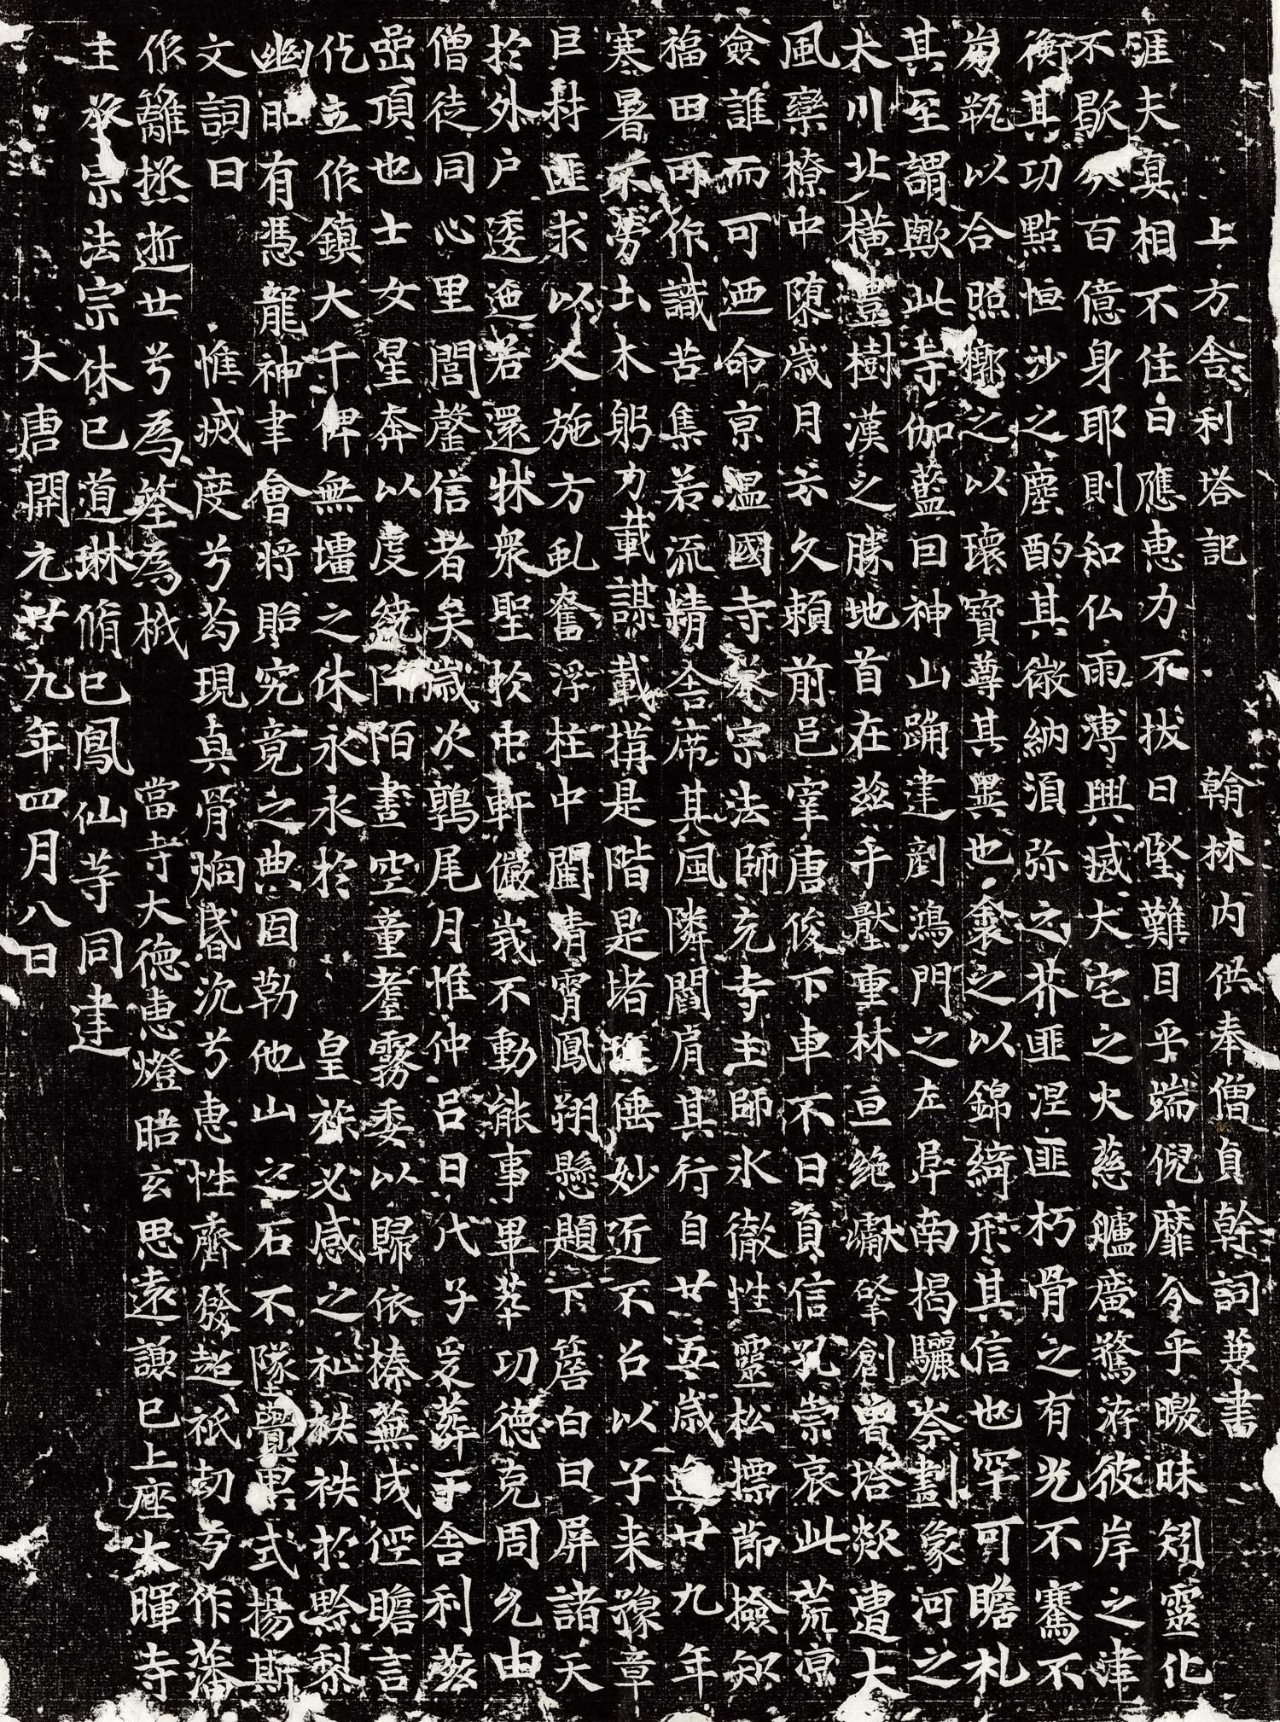 上方舍利塔記 翰林内供奉僧貞幹詞兼書
涯夫真相不住曰應惠力不拔曰堅難目乎端倪靡分乎曒昧矧靈化
不歇 百億身耶則知仏雨溥興㓕大宅之火慈艫廣驚济彼岸之津
衡其功點恒沙之塵酌其微納湏弥之芥匪涅匪朽骨之有光不騫不
崩瓶以合照擲之以瓌寶尊其異也衾之以錦綺形其信也罕可瞻札
其至謂歟此寺伽藍曰神山踊建剖鴻門之左阜南揭驪岑劃象河之
大川北橫豊樹漢之勝地首在兹乎壓重林亘絶巘肇創曽塔歘遭大
風欒橑中隳歳月亦久賴前邑宰唐俊下車不日負信孔崇哀此荒涼
僉誰而可迺命京温國寺承宗法師充寺主師水徹性靈松摽節撿知
福田可作識苦集若流精舎席其風隣閻肩其行自廿五歳 廿九年
寒暑不勞土木躬力載謀載搆是階是堵 倕妙近不召以子来豫章
巨材匪求以人施方虬奮浮柱中闔清霄鳳翔懸題下簷白日屏諸天
於外户逶迤若還牀衆聖於中軒儼峩不動能事畢萃功徳克周允由
僧徒同心里閭罄信者矣歳次鶉尾月惟仲吕日代子爰葬于舎利兹
嵒頂也士女星奔以虔繞阡陌晝空童耋霧委以歸依榛蕪成徑瞻言
仡立作鎮大千俾無壃之休永永於 皇祚必感之祉袟袟於黔黎
幽昭有憑龍神聿會将貽究竟之典固勒他山之石不隊覺里式揚斯
文詞曰 惟㓕度兮芶現真骨烱昏沉兮惠性齊發超祇刼兮作藩
作籬拯逝世兮爲筌爲栰 當寺大德惠燈晤玄思遠謙已上座太暉寺
主承宗法宗休已道琳脩已鳳仙等同建
大唐開元廿九年四月八日